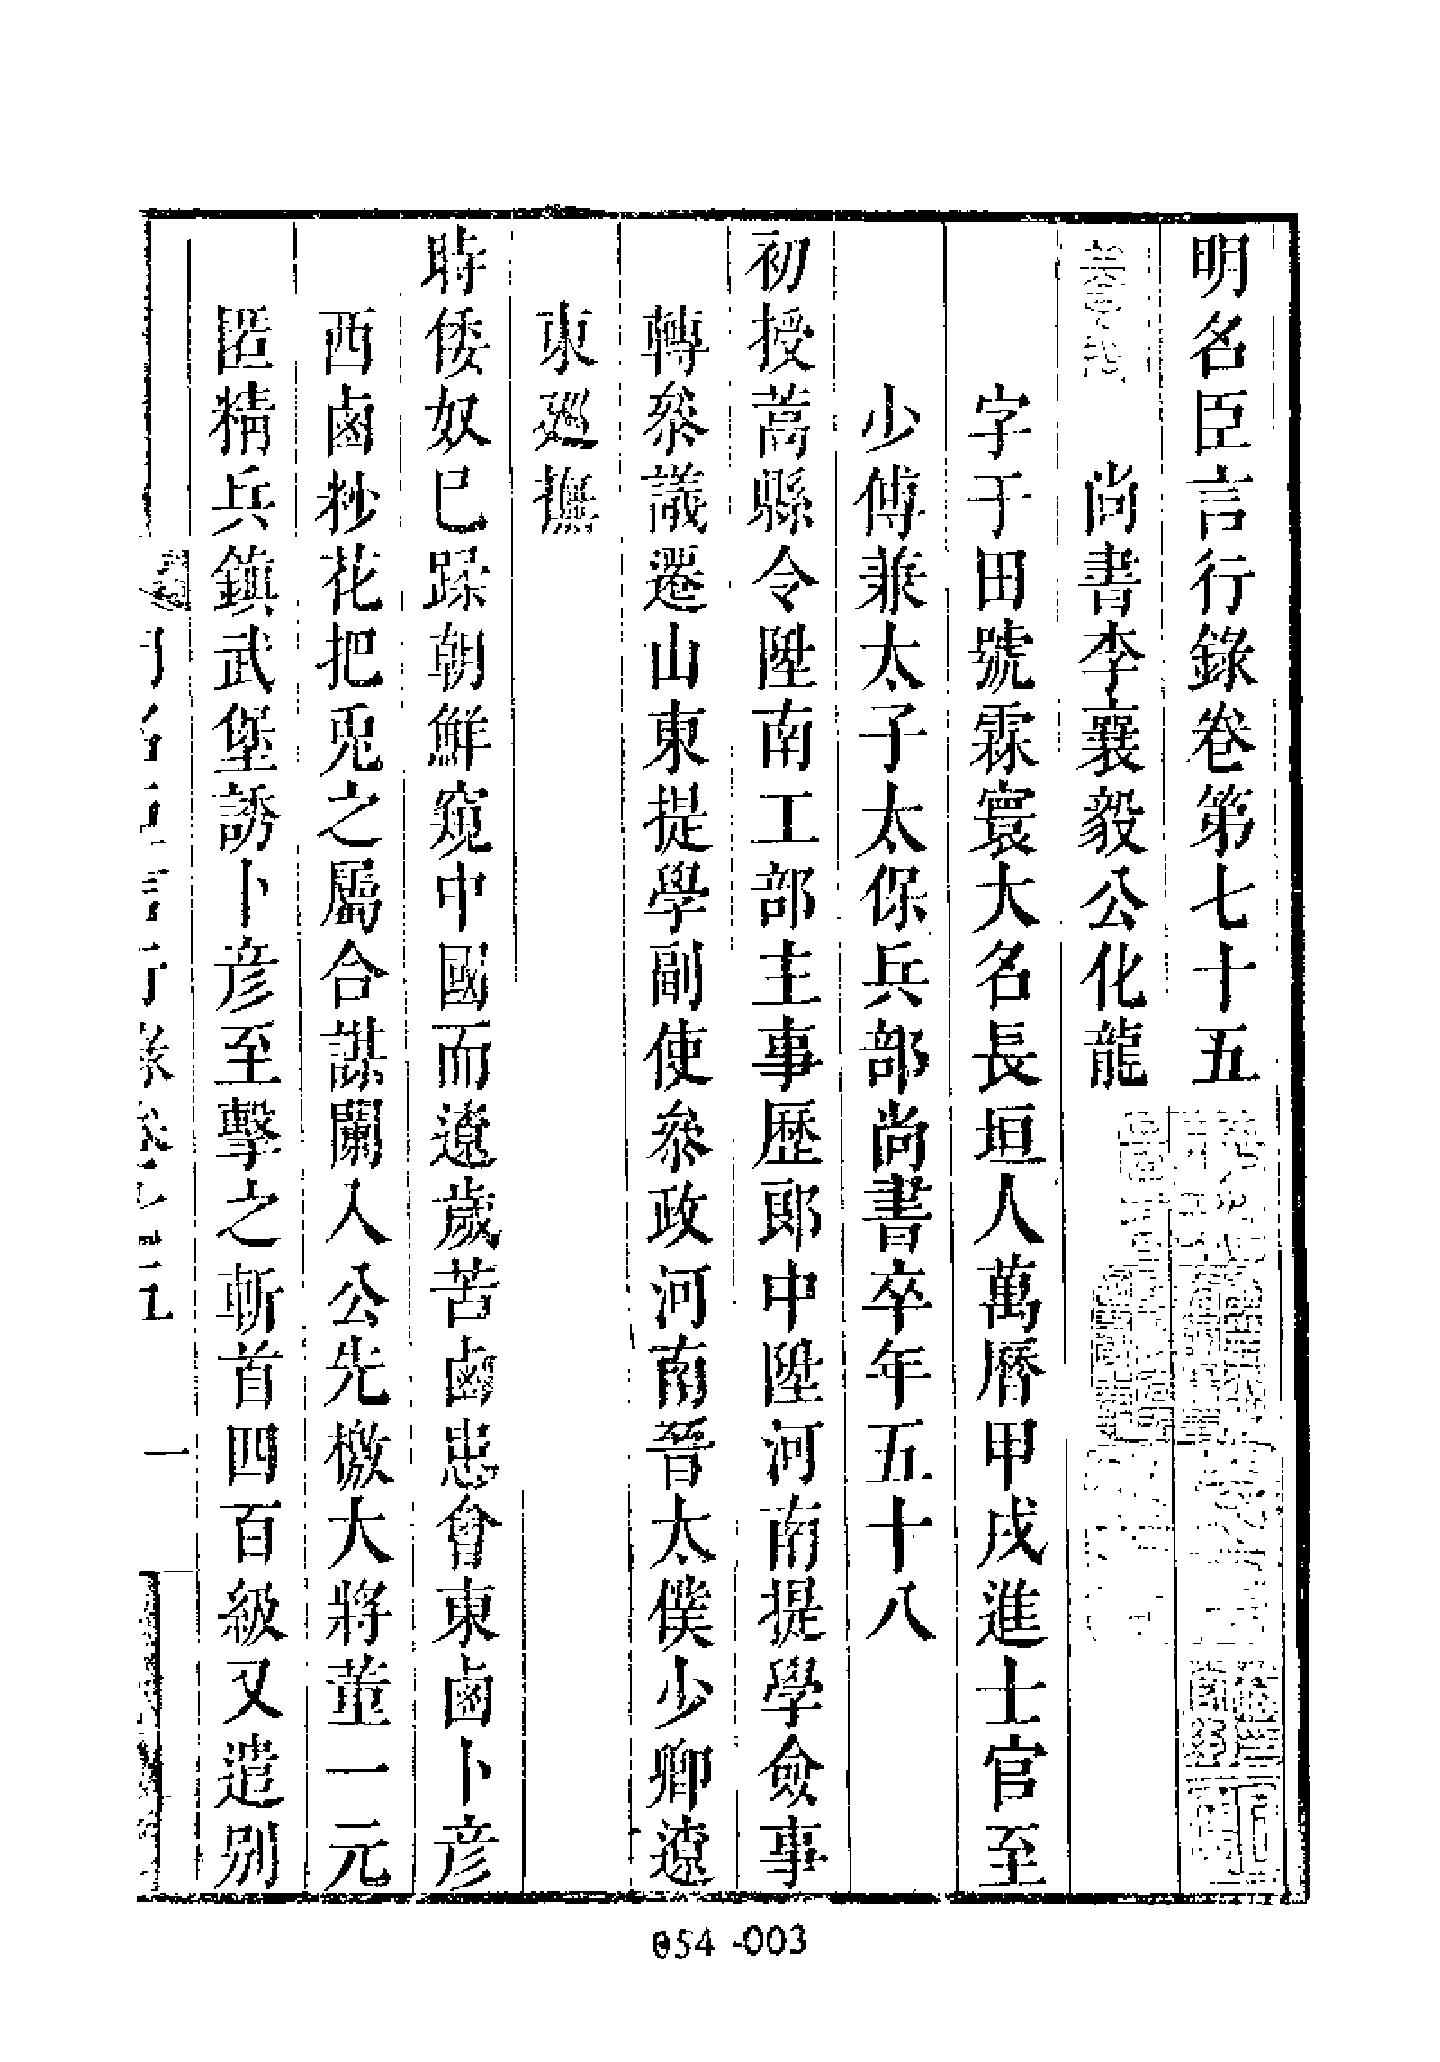 明名臣言行錄卷第七十五
尚書李襄毅公化龍
字于田號霖寰大名長垣人萬曆甲戌進士官至
少傅兼太子太保兵部尚書卒年五十八
初授蒿縣令陞南工部主事歷郎中陞河南提學僉事
轉叅議遷山東提學副使叅政河南晉太僕少卿遼
東廵撫
時倭奴已蹂朝鮮窺中國而遼歲苦鹵患會東鹵卜彥
西鹵炒花把兎之屬合謀闌入公先檄大將董一元
匿精兵鎮武堡誘卜彥至擊之斬首四百級又遣別
一
054-003